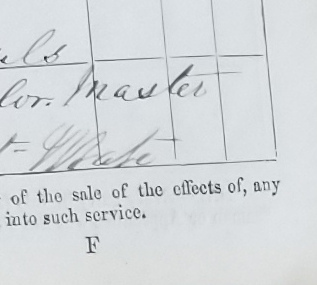 els
lor. Master
of the sale of the effects of, any
into such service.
F